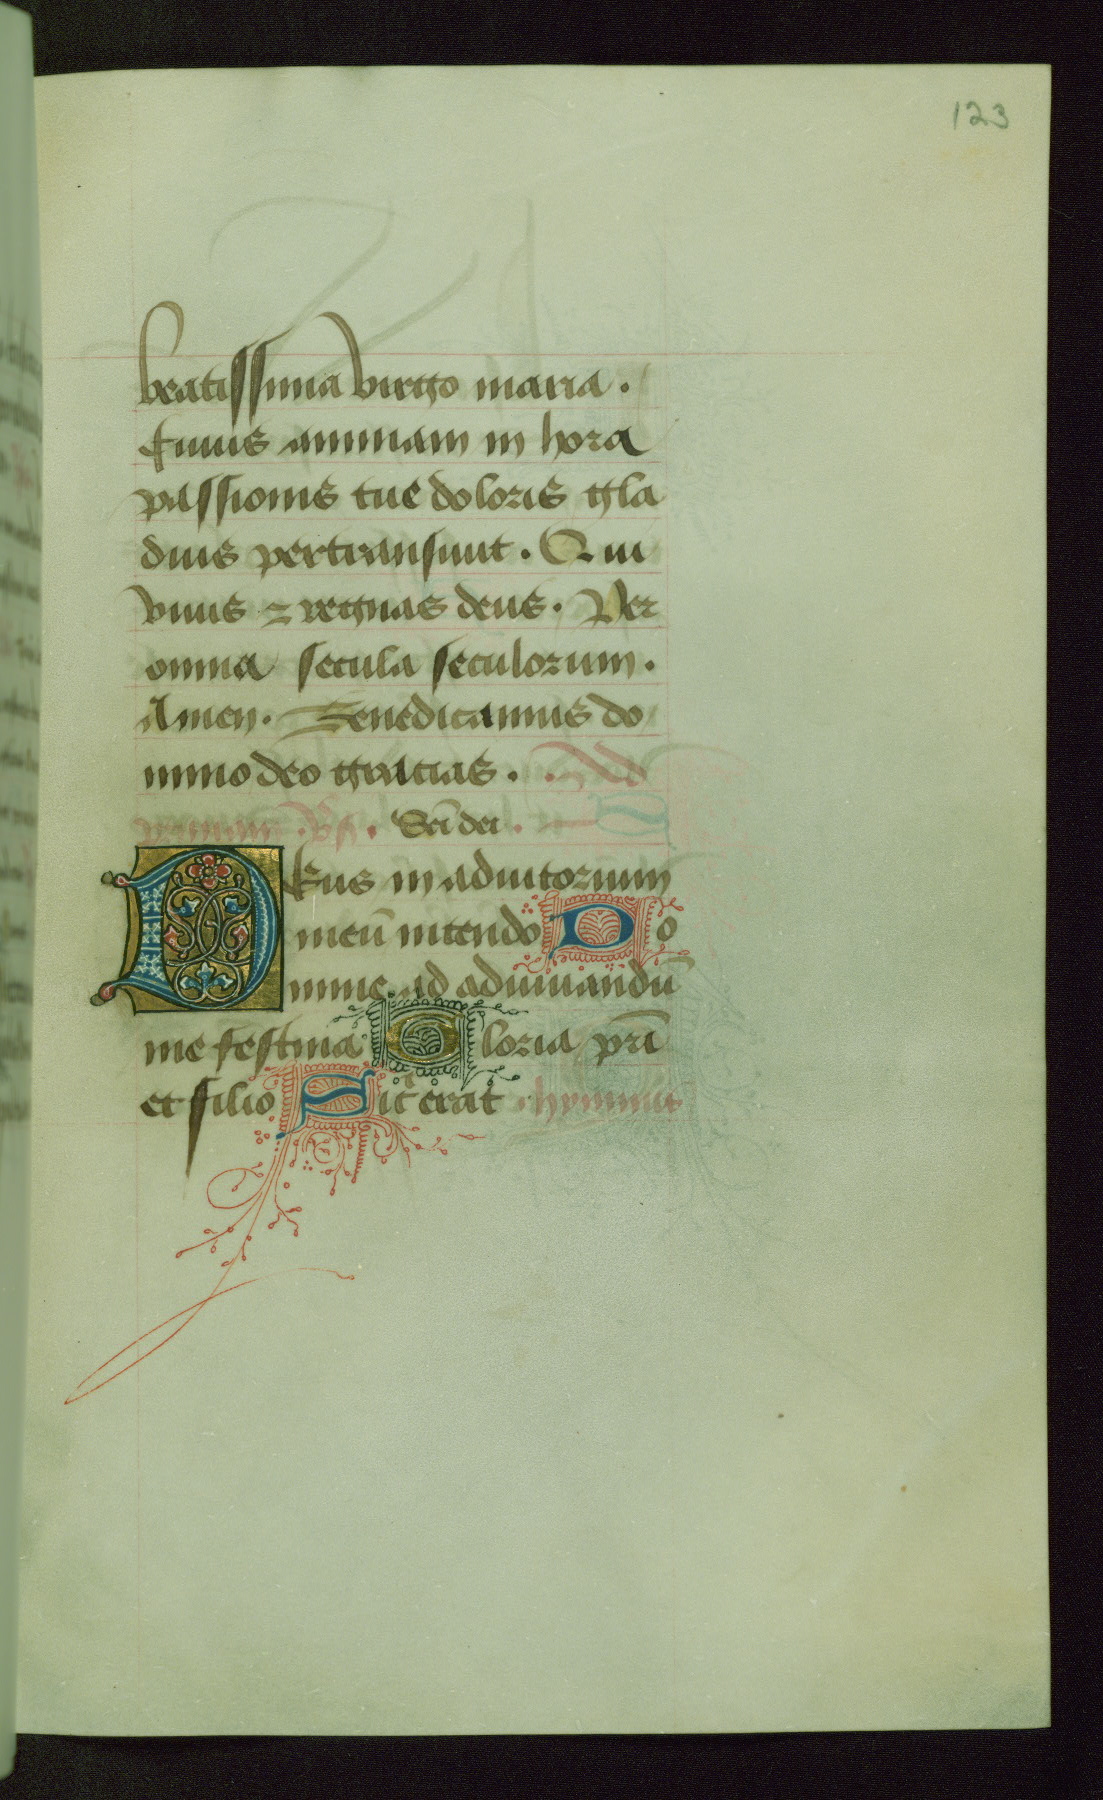 123
beatissima virgo maria.
Cuius animam in hora
passionis tue doloris gla
dius pertransiuit. Qui
viuis ⁊ regnas deus. Per
omnia secula seculorum.
Amen. Benedicamus do
mino deo gracias. Ad
primam. Rx. Sci dei.
Deus in adiutorium
meū intende Do
mine ad adiuuandū
me festina Gloria pri
et filio Sic̄ erat. hymnus